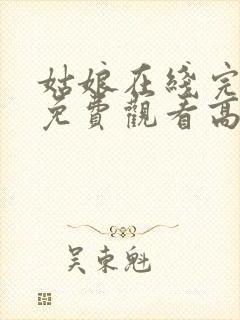 姑娘在线完
免費觀看高
吴東魁